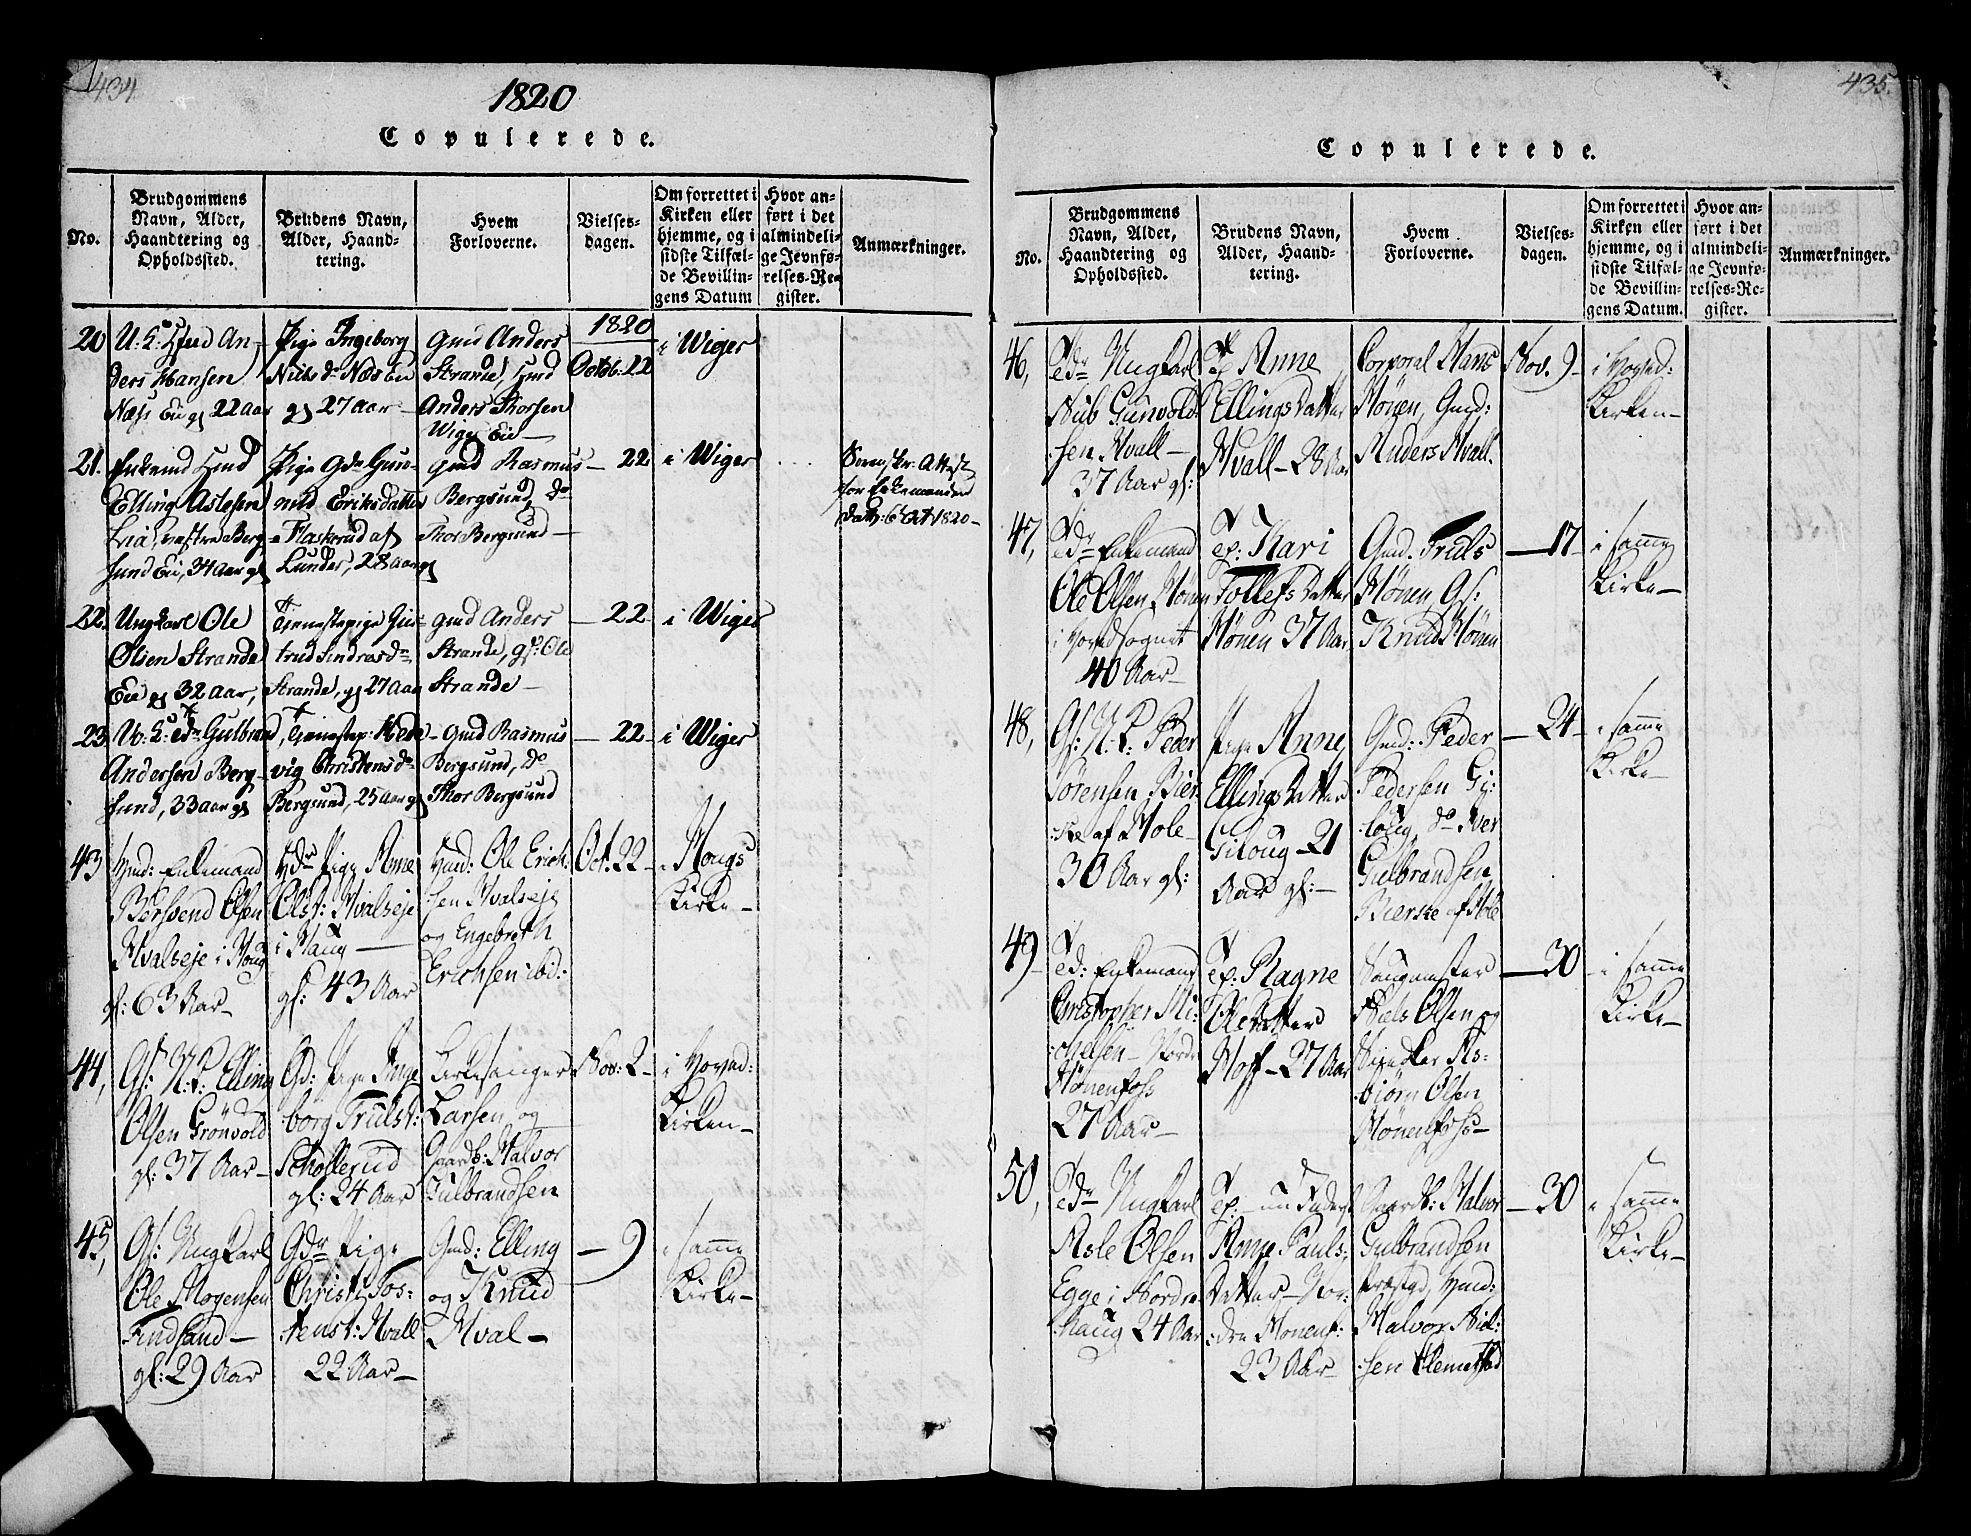 434
1820
Copulerede.
No.
Brudgommens
Navn, Alder,
Haandtering og
Opholdssted.
Brudens Navn,
Alder, Haand-
tering.
Hvem
Forloverne.
Vielses-
dagen.
Om forrettet i
Kirken eller
hjemme, og i
sidste Tilfæl-
de Bevillin-
gens Datum
Hvor an-
ført i det
almindeli-
ge Jevnfø-
relses-Re-
gister.
Anmærkninger.
20
U. K. An-
ders Hansen
Næss Eie gl 22 aar
Pige Ingeborg
Niels dr Næs Eie
gl 27 aar
Gmd Anders
Strande, Hmd
Anders Thorsen
Wiger Eie
1820
Octob: 22
i Wiger
21.
Enkemd Hmd
Elling Aslesen
Lia, Berg-
sund Eie, 34 aar gl
Pige Gun-
nild Eriksdatter
Flaskerud af
Lunder, 28 aar gl
Gmd Rasmus
Bergsund, do
Thor Bergsund
22
i Wiger
Attest
for Enkemanden
dat: 6 Oct 1820
22.
Ungkarl Ole
Olsen Strande
Eie gl 32 aar,
Tjenestepige Gu-
trud Sindresdr
Strande, gl 27 aar
Gmd Anders
Strande, gl: Ole
Strande
22
i Wiger
23
U. K: Gulbrand
Andersen Berg-
sund, 33 aar gl
Tjenestep: Hed-
vig Christensdr
Bergsund, 25 aar gl
Gmd Rasmus
Bergsund, do
Thor Bergsund
22
i Wiger
43
Hmd: Enkemand
Berssvend Olsen
Hvalseje i Houg
gl: 63 Aar
Pige Anne
Olsd: Hvalseje
i Haug
gl: 43 Aar
Hmd: Ole Erich-
sen Hvalseje
og Engebreth
Erichsen ibid:
Oct. 22
i Hougs
Kirke
44,
Gl: U. K: Elling
Olsen Grönvold
gl: 37 Aar
Gd: Pige Inge-
borg Trulsd:
Schollerud
gl: 24 Aar
Kirkesanger
Larsen og
Gaardb: Halvor
Gulbrandsen
Nov: 2
i Hoved:
Kirken
45,
Gl: Ungkarl
Ole Mogensen
Findsand
gl: 29 Aar
Gdr Pige
Christi Tos-
tensd: Hvall
22 Aar
Gmd: Elling
og Knud
Hval
9
i samme
Kirke
435.
Copulerede.
No.
Brudgommens
Navn, Alder,
Haandtering og
Opholdssted.
Brudens Navn,
Alder, Haand-
tering.
Hvem
Forloverne.
Vielses-
dagen.
Om forrettet i
Kirken eller
hjemme, og i
sidste Tilfæl-
de Bevillin-
gens Datum.
Hvor an-
ført i det
almindeli-
ge Jevnfø-
relses-Re-
gister.
Anmærkninger.
46,
Ungkarl
Niels Gunvold-
sen Hvall
37 Aar gl:
Anne
Ellings datter
Hvall 28 Aar
Corporal Hans
Hönen, Gmd:
Anders Hvall.
Nov. 9
i Hoved:
Kirken
47,
Enkemand
Ole Olsen Hönen
i Hovedsognet
40 Aar
Kari
Tollefs datter
Hönen 37 Aar
Gmd. Truls
Hönen Gl:
Knud Hönen
17
i samme
Kirke
48,
Gl: U. K: Peder
Sörensen Bier-
ske af Hole
30 Aar gl:
Pige Anne
Ellings datter
Giloug 21
Aar gl:
Gmd: Peder
Pedersen Gi-
loug, do Iver
Gulbrandsen
Bierske af Hole
24
i samme
Kirke
49
Enkemand
Christopher Mi-
chelsen Nordre
Hönenfoss
27 Aar
Ragne
Olsdatter
Hoff 27 Aar
Saugmester
Niels Olsen og
Snedker As-
biörn Olsen
Hönenfoss
30
i samme
Kirke
50,
Ungkarl
Asle Olsen
Egge i Nordre
Haug 24 Aar
Anne Pauls-
datter Nor-
dre Hönenf:
23 Aar
Gaardb: Halvor
Gulbrandsen
Hmd:
Halvor Niel-
sen
30
i samme
Kirke